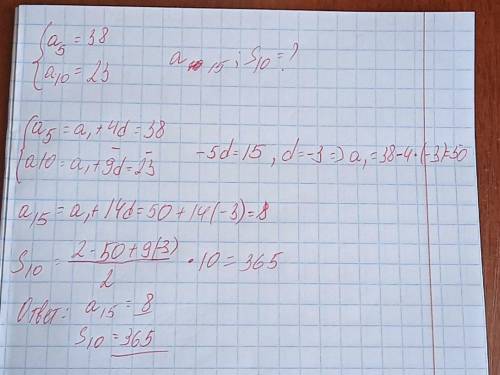 {a₅ = 38
{a₁₀ = 23
a₁₅ ; S₁₀ = ?
{a₅ = a₁ + 4d = 38
{a10 = a₁ + 9d = 23
-5d = 15 , d = -3 => a₁ = 38 - 4 · (-3) = 50
a₁₅ = a₁ + 14d = 50 + 14(-3) = 8
S₁₀ = (2 · 50 + 9(-3))/2 · 10 = 365
Ответ: a₁₅ = 8
S₁₀ = 365